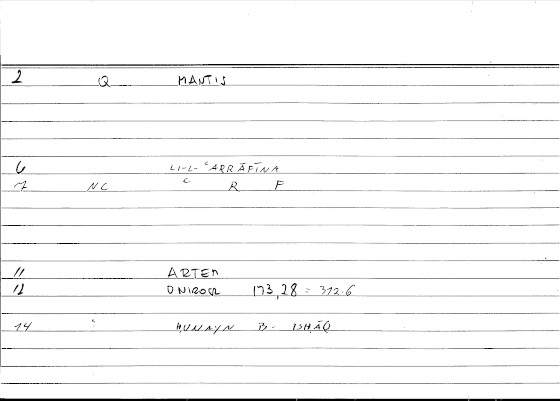 2 Q MANTIS
6 LI-L-ʿARRĀFĪNA
7 NC ʿ R F
11 ARTEM
12 ONIROCR 173,28 = 312.6
14 ḤUNAYN B- ISḤĀQ